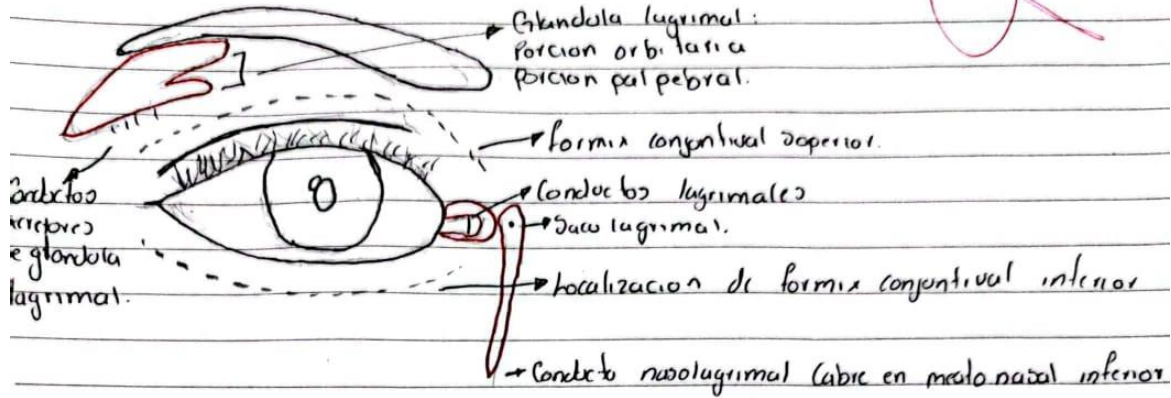 Glandula lagrimal:
Porcion orbitaria
Porcion palpebral.
formix conjuntival superior.
Conductos lagrimales
Saco lagrimal.
Localizacion de formix conjuntival inferior
Conducto nasolagrimal (abre en meato nasal inferior
onductos
cretores
e glandula
lagrimal.